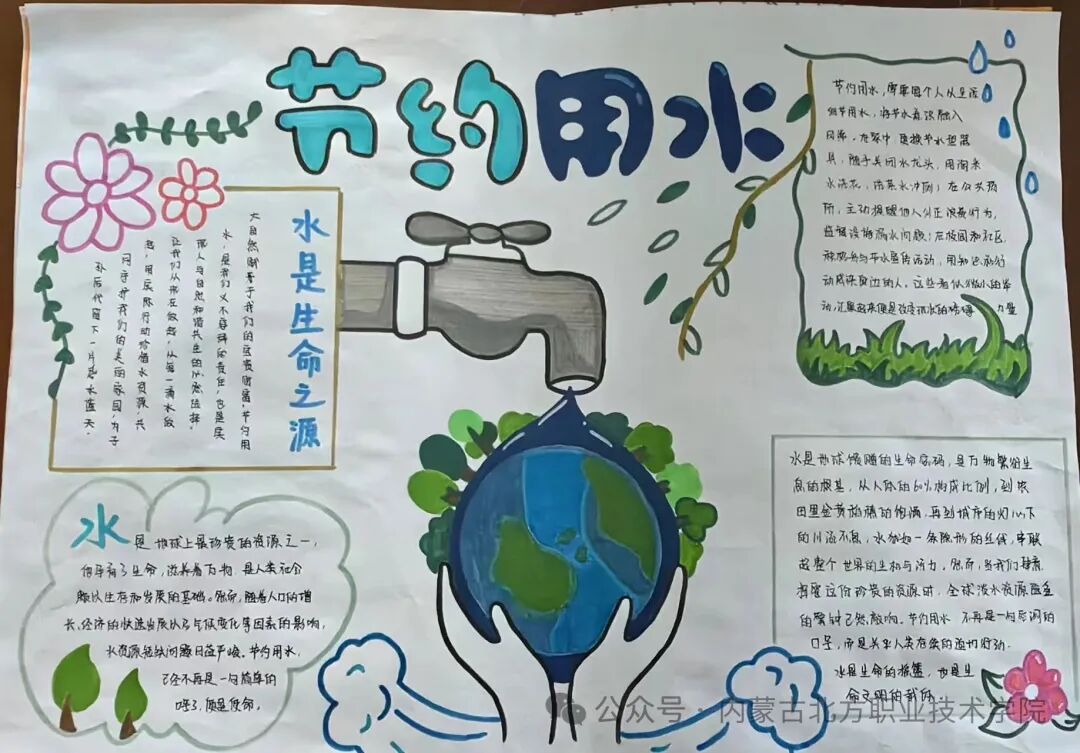 节约用水
水是生命之源
大自然赋予我们的宝贵财富，节约用
水，是我们义不容辞的责任，也是实
现人与自然和谐共生的必然选择，
让我们从现在做起，从每一滴水做
起，用实际行动珍惜水资源，共
同守护我们的美丽家园，为子
孙后代留下一片碧水蓝天。
节约用水，需要每个人从生活
细节用水，将节水意识融入
日常，在家中更换节水型器
具，随手关闭水龙头，用淘米
水浇花，洗菜水冲厕；在公共场
所，主动提醒他人纠正浪费行为，
监督设施漏水问题；在校园和社区，
积极参与节水宣传活动，用知识和行
动感染身边的人。这些看似微小的举
动，汇聚起来便是改变的 力量
水
是地球上最珍贵的资源之一，
它孕育了生命，滋养着万物，是人类社会
赖以生存和发展的基础。然而，随着人口的增
长、经济的快速发展以及气候变化等因素的影响，
水资源短缺问题日益严峻。节约用水，
已经不再是一句简单的
口号，而是使命。
水是地球馈赠的生命密码，是万物繁衍生
息的根基，从人体的60%构成比例，到农
田里金黄稻穗的饱满，再到城市的灯火下
的川流不息，水犹如一条隐形的丝线，串联
起整个世界的生机与活力。然而，当我们肆意
挥霍这份珍贵的资源时，全球淡水资源匮乏
的警钟已然敲响。节约用水 不再是一句空洞的
口号，而是关乎人类存续的迫切行动。
水是生命的摇篮，也是生
命文明的载体
公众号·内蒙古北方职业技术学院